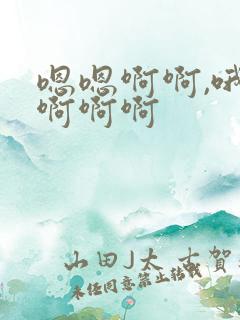 嗯嗯啊啊,哦
啊啊啊
山田J太 古賀
未经同意禁止转载